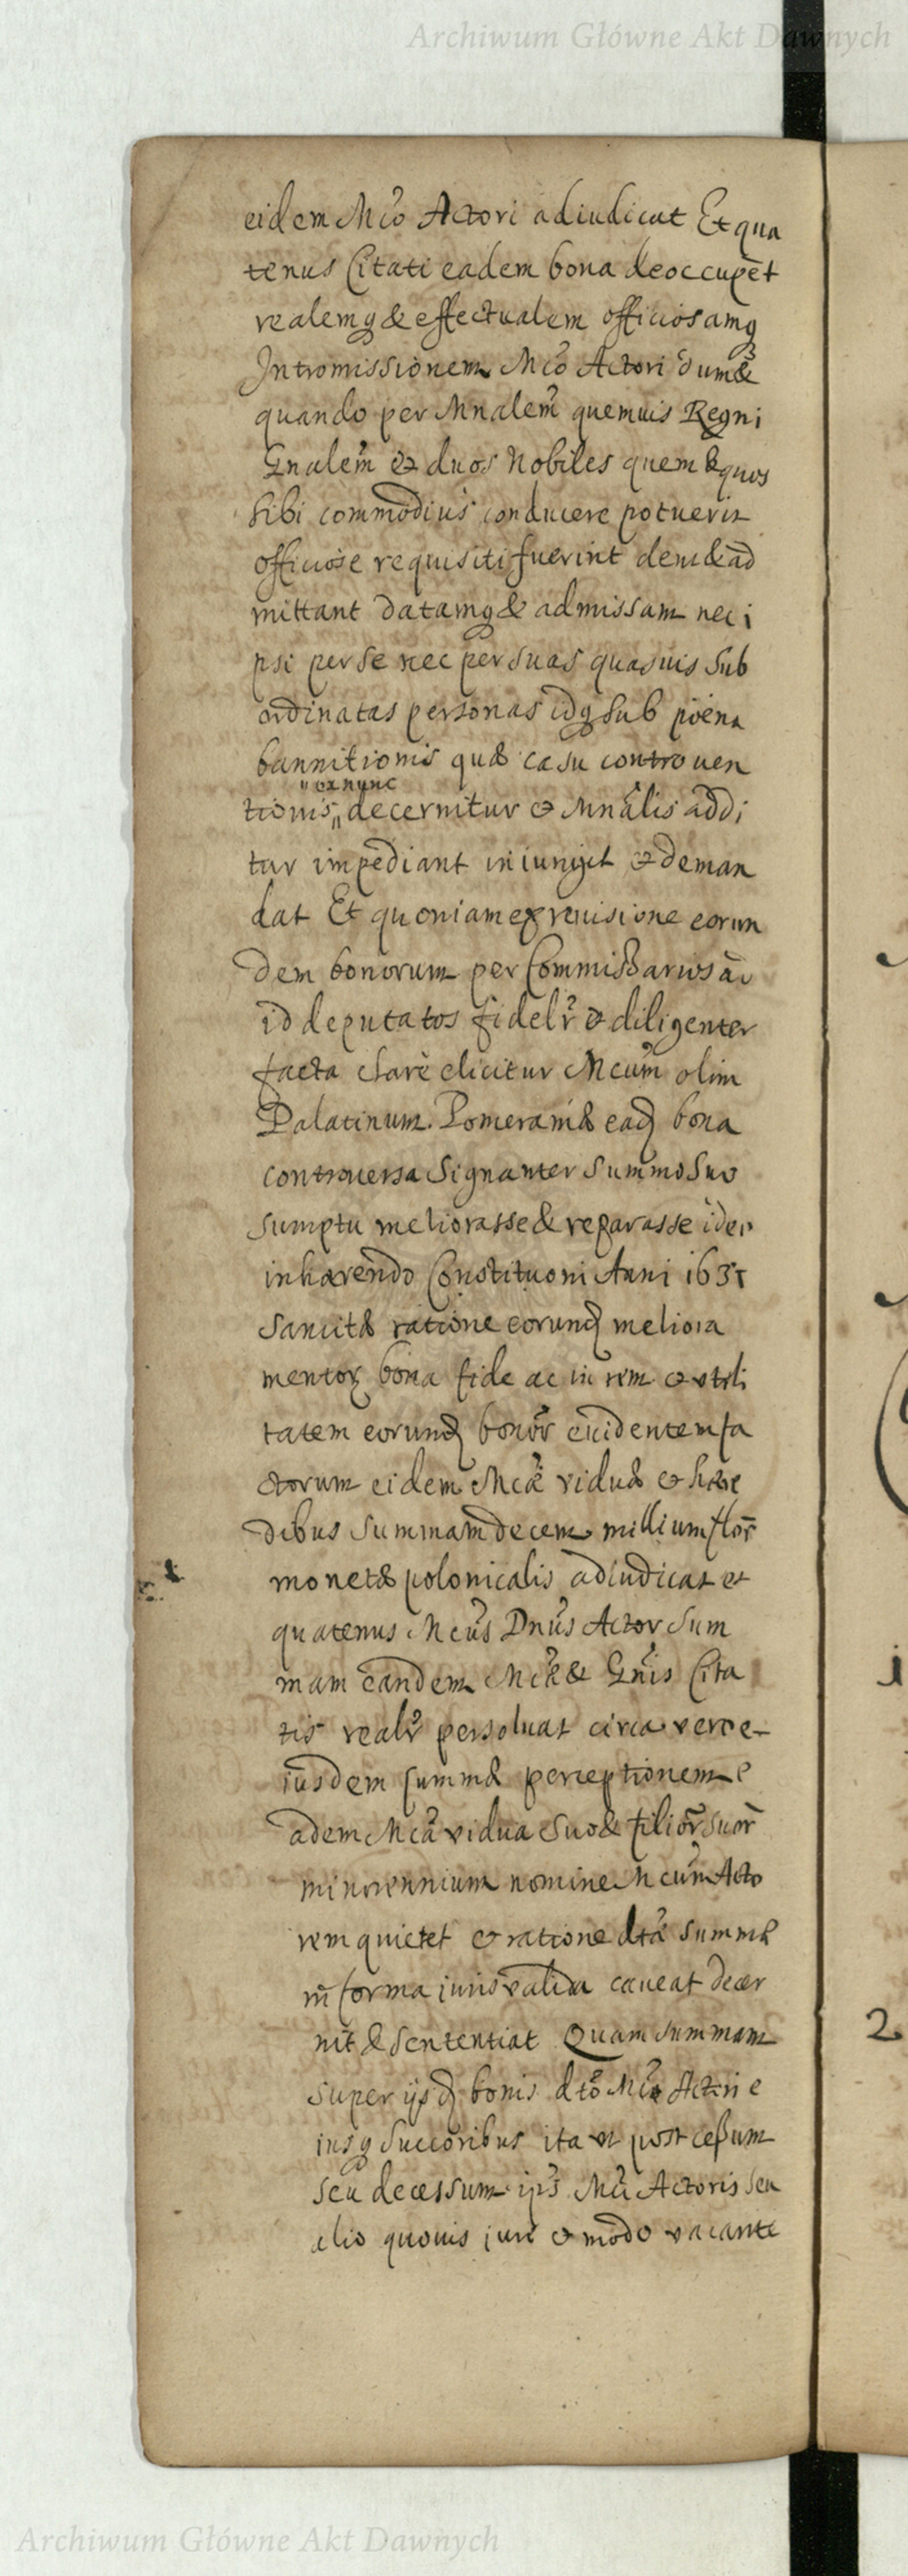 Archiwum Główne Akt Dawnych
eidem Mcō Actori adiudicat Et qua
tenus Citati eadem bona deoccupēt
realemq & effectualem officiosamq
Intromissionem Mcō Actori dum &
quando per Mnalem̄ quemuis Regni
Gnalem̄ et duos Nobiles quem & quos
sibi commodius conducere potuerit
officiose requisiti fuerint dent & ad
mittant datamq & admissam nec i
psi per se nec per suas quasuis sub
ordinatas personas idq sub pōena
bannitionis quæ casu controuen
tionis ex nunc decernitur & Mnālis addi
tur impediant iniungit & deman
dat Et quoniam ex reuisione eorun
dem bonorum per Commissarios ad
id deputatos fidelr̄ & diligenter
facta clarè elicitur Mcum̄ olim
Palatinum Pomeraniæ ead bona
controuersa signanter summo suo
sumptu meliorasse & reparasse ideo
inhærendo Constituoni Anni 1631
Sancitæ ratione eorund meliora
mentor bona fide ac in rem & vtili
tatem eorund bonor̄ euidentem fa
ctorum eidem Mcæ viduæ & hære
dibus summam decem millium flor̄
monetæ polonicalis adiudicat et
quatenus Mcus̄ Dnūs Actor sum
mam eandem Mcæ & Gnīs Cita
tis realr̄ persoluat circa vero e
iusdem summæ perceptionem e
adem Mcā vidua suo & filior̄ suor̄
minorennium nomine Mcum̄ Acto
rem quietet & ratione dtæ summæ
in forma iuris valida caueat decer
nit & sententiat Quam summam
super ijsd bonis dtō Mcō Actori e
iusq succoribus ita vt post cessum
seu decessum ips̄ Mci Actoris seu
alio quouis iure & modo vacante
2
Archiwum Główne Akt Dawnych